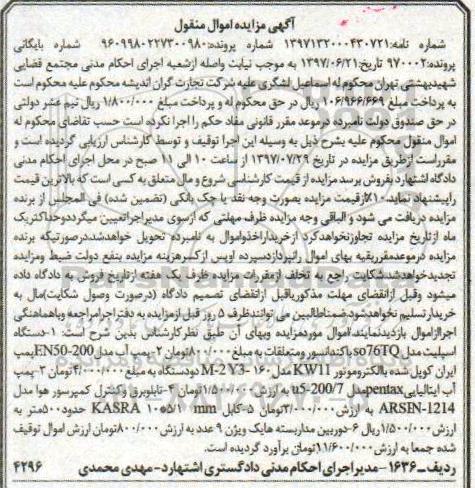 آگهی مزایده اموال منقول
شماره نامه:۱۳۹۷۱۳۲۰۰۰۴۳۰۷۲۱ شماره پرونده:۹۶۰۹۹۸۰۲۲۷۳۰۰۹۸۰ شماره بایگانی
پرونده:۹۷۰۰۰۲ تاریخ:۱۳۹۷/۰۶/۲۱ به موجب نیابت واصله ازشعبه اجرای احکام مدنی مجتمع قضایی
شهیدبهشتی تهران محکوم له اسماعیل لشگری علیه شرکت تجارت گران اندیشه محکوم علیه محکوم است
به پرداخت مبلغ ۱۰۶/۹۶۶/۶۶۹ ریال در حق محکوم له و پرداخت مبلغ ۱/۸۰۰/۰۰۰ ریال نیم عشر دولتی
در حق صندوق دولت نامبرده درموعد مقرر قانونی مفاد حکم را اجرا نکرده است حسب تقاضای محکوم له
اموال منقول محکوم علیه بشرح ذیل به وسیله این اجرا توقیف و توسط کارشناس ارزیابی گردیده است و
مقرراست ازطریق مزایده در تاریخ ۱۳۹۷/۰۷/۲۹ از ساعت ۱۰ الی ۱۱ صبح در محل اجرای احکام مدنی
دادگاه اشتهارد بفروش برسد مزایده از قیمت کارشناسی شروع و مال متعلق به کسی است که بالاترین قیمت
راپیشنهاد نماید.۱۰٪ازقیمت مزایده بصورت وجه نقد یا چک بانکی (تضمین شده) فی المجلس از برنده
مزایده دریافت می شود و الباقی وجه مزایده ظرف مهلتی که ازسوی مدیراجراتعیین میگرددوحداکثریک
ماه ازتاریخ مزایده تجاوزنخواهدکرد ازخریداراخذواموال به نامبرده تحویل خواهدشددرصورتیکه برنده
مزایده درموعدمقرربقیه بهای اموال رانپردازدسپرده اوپس ازکسرهزینه مزایده بنفع دولت ضبط ومزایده
تجدیدخواهدشدشکایت راجع به تخلف ازمقررات مزایده ظرف یک هفته ازتاریخ فروش به دادگاه داده
میشود وقبل ازانقضای مهلت مذکوریاقبل ازاتقضای تصمیم دادگاه (درصورت وصول شکایت)مال به
خریدارتسلیم نخواهدشدضمناطالبین می توانندظرف ۵ روز قبل ازمزایده به دفتراجرامراجعه وباهماهنگی
اجراازاموال بازدیدنمایند/اموال موردمزایده وبهای آن طبق نظرکارشناس بدین شرح است: ۱-دستگاه
اسپلیت مدل so76TQ باکندانسور ومتعلقات به مبلغ ۸۰۰/۰۰۰تومان ۲-پمپ آب مدل EN50-200پمپ
ایران کوپل شده باالکتروموتور KW11 مدل M-2Y3-۱۶۰ دودستگاه به مبلغ ۴/۰۰۰/۰۰۰تومان ۳- پمپ
آب ایتالیاییpentaxمدل u5-200/7 به ارزش ۱/۵۰۰/۰۰۰تومان ۴-تابلوبرق وکنترل کمپرسور هوا مدل
ARSIN-1214 به ارزش ۳/۰۰۰/۰۰۰تومان ۵-کابل KASRA ۱۰∗۵/۱ mm حدود ۵۰۰متر به
ارزش ۱/۵۰۰/۰۰۰ریال ۶-دوربین مداربسته هایک ویژن ۹ عدد به ارزش ۸۰۰/۰۰۰تومان ارزش اموال توقیف
شده جمعا به ارزش ۱۱/۶۰۰/۰۰۰تومان برآورد گردیده است.
ردیف ــ ۱۶۳۶- مدیر اجرای احکام مدنی دادگستری اشتهارد- مهدی محمدی ۴۲۹۶